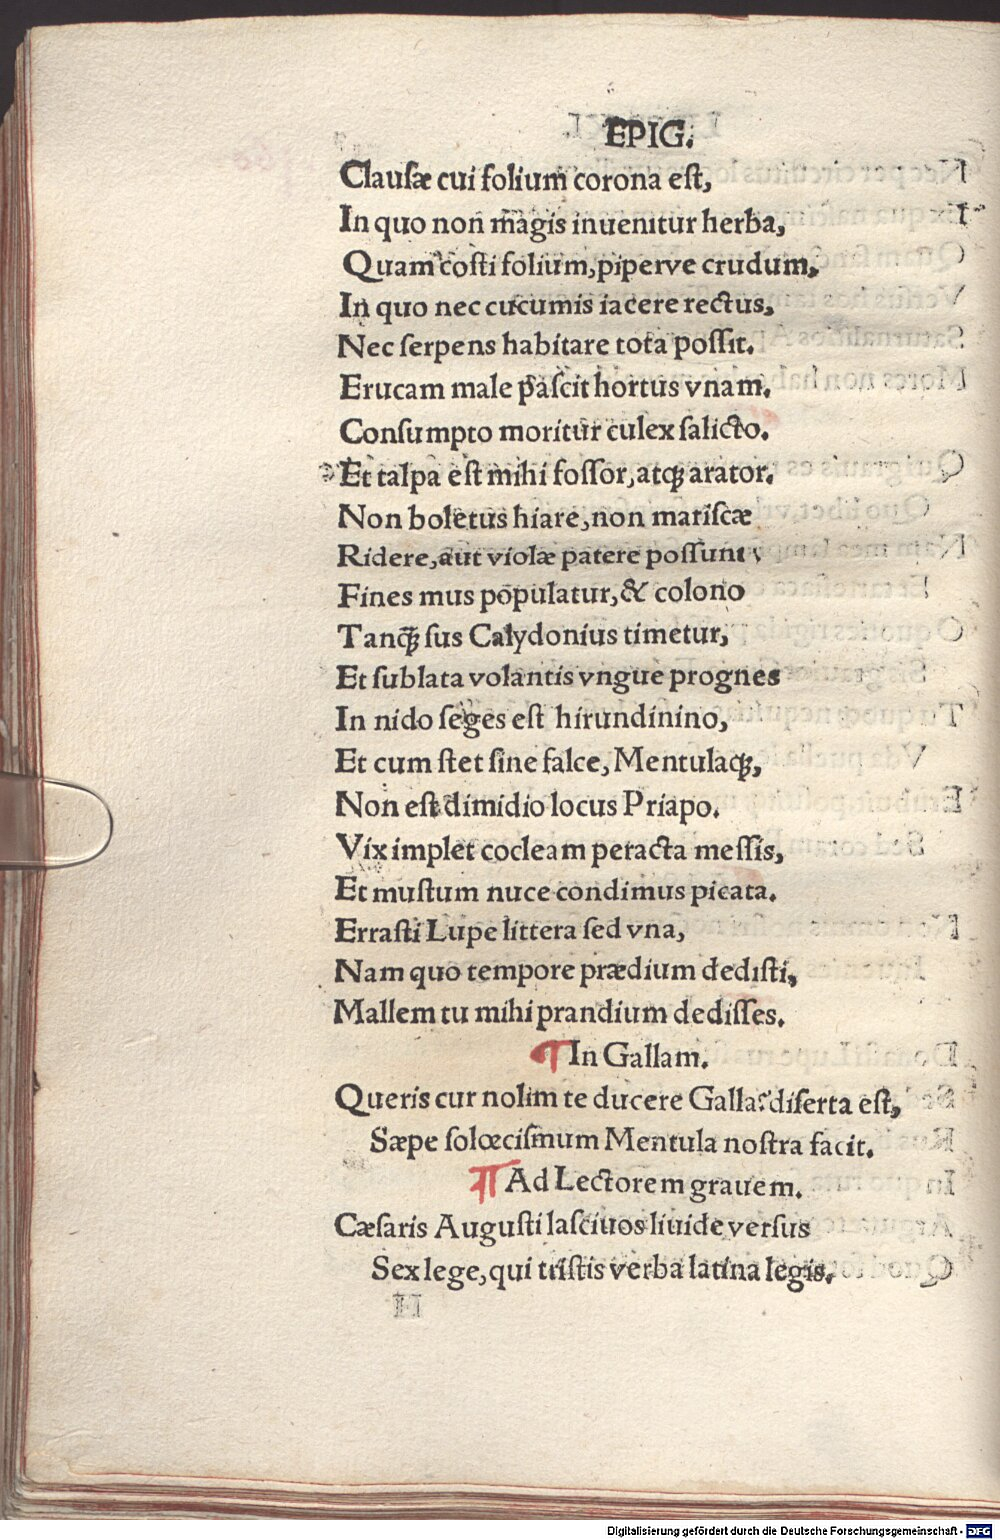 EPIG.
Clausæ cui folium corona est,
In quo non magis inuenitur herba,
Quam costi folium, piperve crudum.
In quo nec cucumis iacere rectus,
Nec serpens habitare tota possit.
Erucam male pascit hortus vnam.
Consumpto moritur culex salicto.
Et talpa est mihi fossor, atqꝫ arator.
Non boletus hiare, non mariscæ
Ridere, aut violæ patere possunt
Fines mus populatur, & colono
Tanqꝫ sus Calydonius timetur,
Et sublata volantis vngue prognes
In nido seges est hirundinino,
Et cum stet sine falce, Mentulaqꝫ,
Non est dimidio locus Priapo.
Vix implet cocleam peracta messis,
Et mustum nuce condimus picata.
Errasti Lupe littera sed vna,
Nam quo tempore prædium dedisti,
Mallem tu mihi prandium dedisses.
¶ In Gallam.
Queris cur nolim te ducere Galla? diserta est,
Sæpe solœcismum Mentula nostra facit.
¶ Ad Lectorem grauem.
Cæsaris Augusti lasciuos liuide versus
Sex lege, qui tristis verba latina legis.
Digitalisierung gefördert durch die Deutsche Forschungsgemeinschaft - DFG